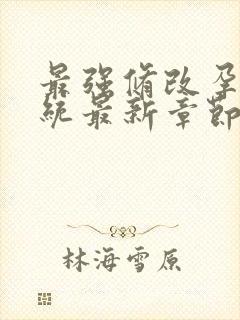 最强修改孕
统最新章节
林海雪原